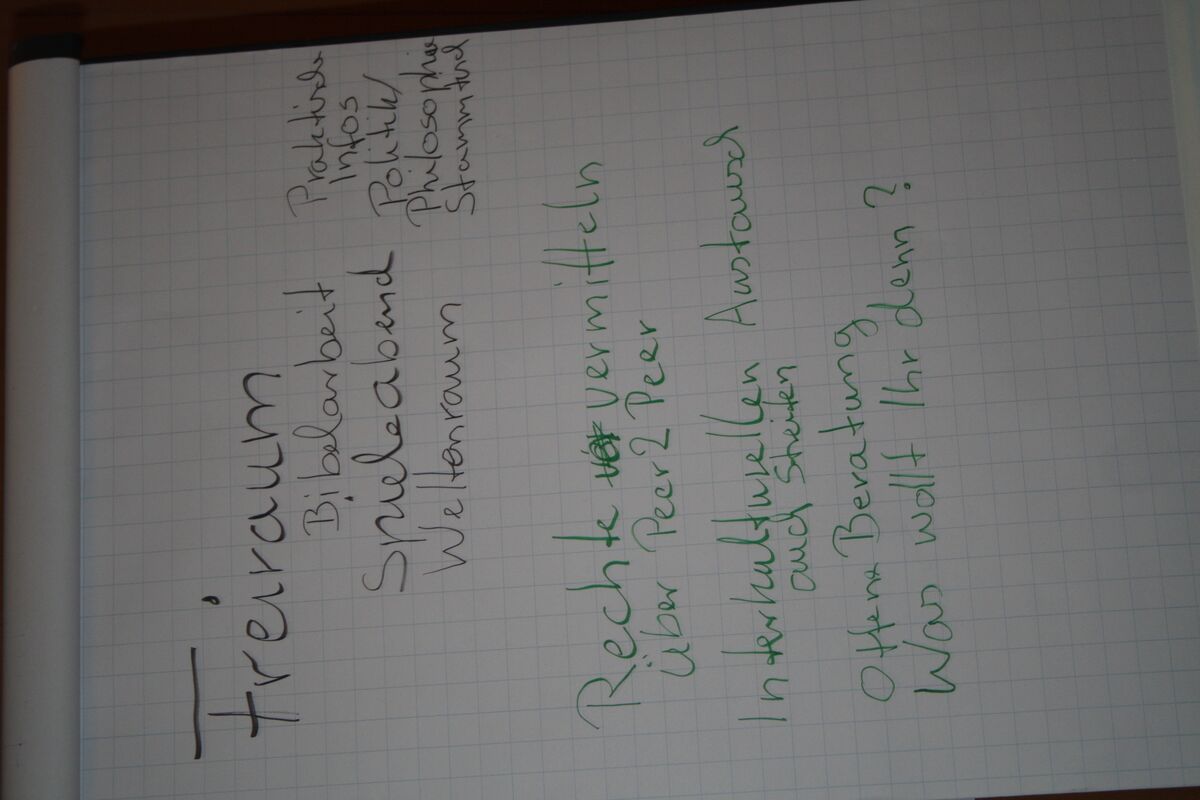 Freiraum
Bibelarbeit
Spieleabend
Weltenraum
Praktische
Infos
Politik/
Philosophie
Stammtisch
Rechte vermitteln
über Peer2Peer
Interkulturellen Austausch
auch Streiten
Offene Beratung
Was wollt Ihr denn?